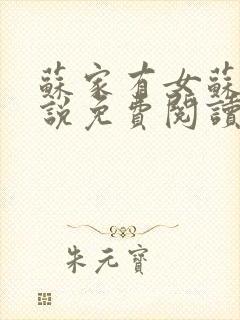 蘇家有女蘇
說免費閱讀
朱元寶